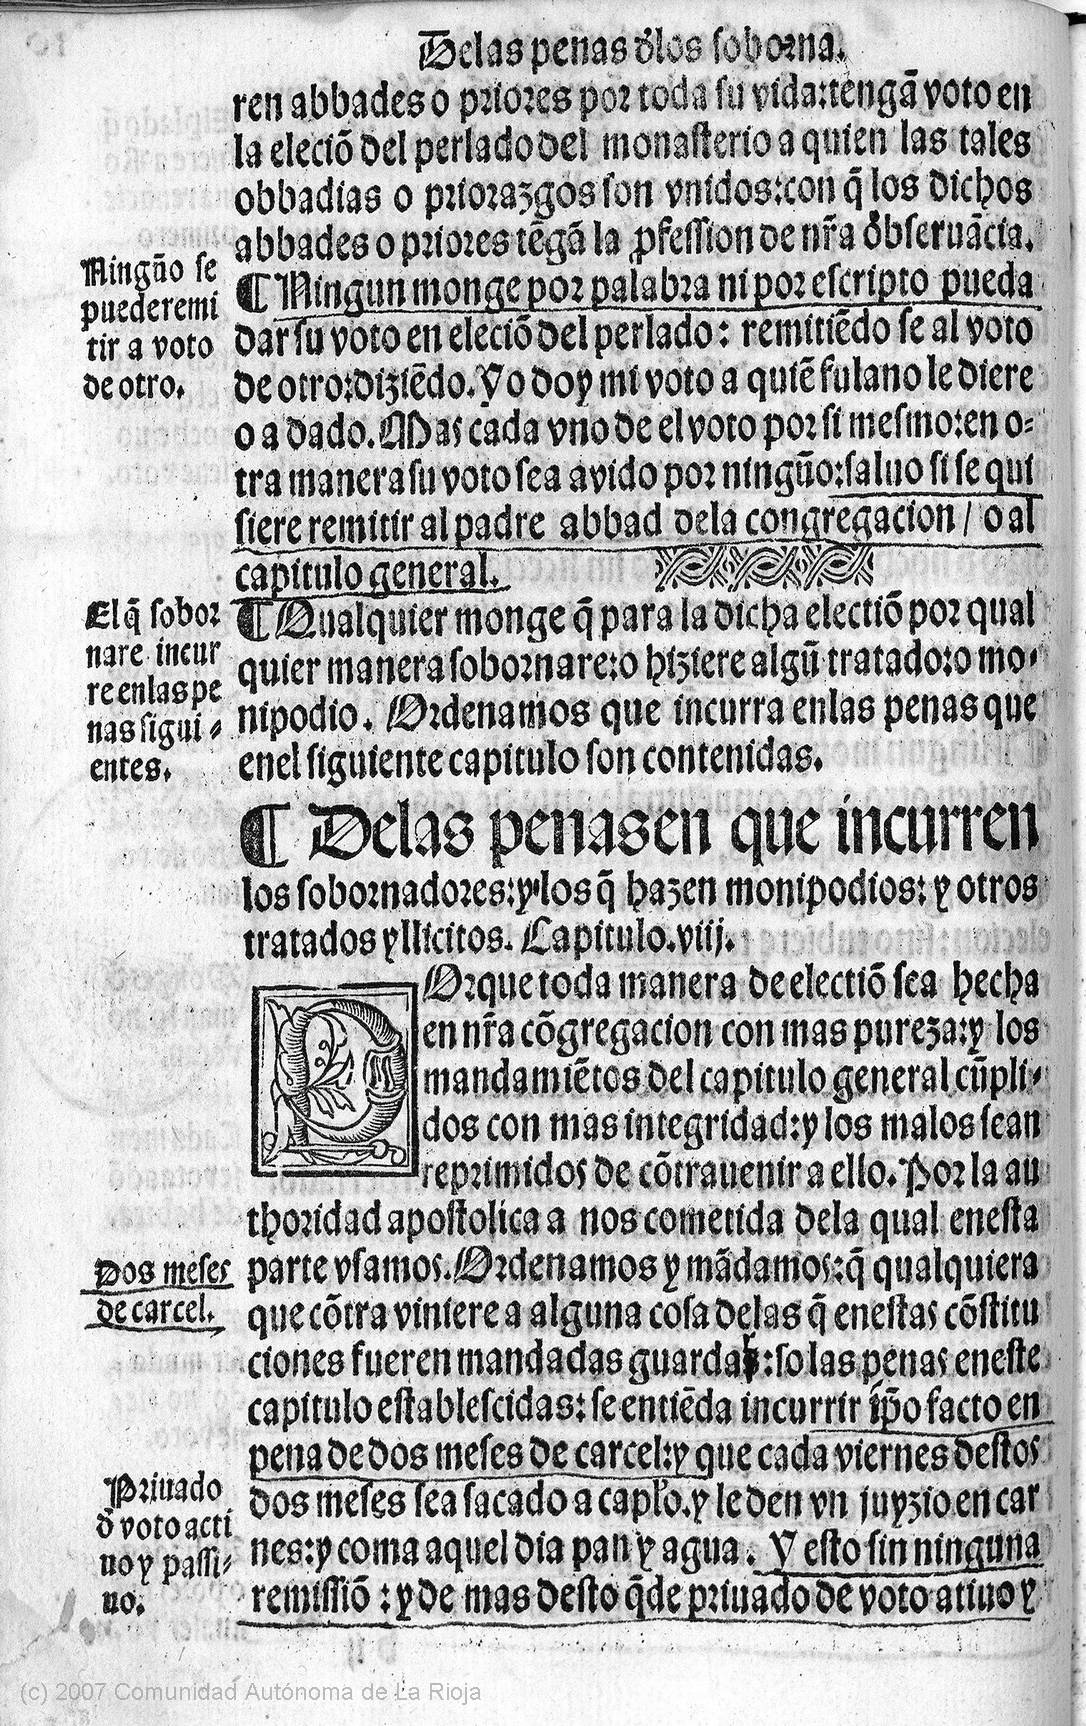 Delas penas d̕los soborna.
ren abbades o priores por toda su vida:tengã voto en
la eleciõ del perlado del monasterio a quien las tales
obbadias o priorazgos son vnidos:con q̃ los dichos
abbades o priores tẽgã la ꝓfession de nr̃a obseruãcia.
Ningũo se
puede remi
tir a voto
de otro.
¶ Ningun monge por palabra ni por escripto pueda
dar su voto en eleciõ del perlado: remitiẽdo se al voto
de otro:diziẽdo. Yo doy mi voto a quiẽ fulano le diere
o a dado. Mas cada vno de el voto por si mesmo:en o-
tra manera su voto sea avido por ningũo:saluo si se qui
siere remitir al padre abbad dela congregacion / o al
capitulo general.
El q̃ sobor
nare incur
re enlas pe
nas sigui-
entes.
¶ Qualquier monge q̃ para la dicha electiõ por qual
quier manera sobornare:o hiziere algũ tratado:o mo-
nipodio. Ordenamos que incurra enlas penas que
enel siguiente capitulo son contenidas.
¶ Delas penas en que incurren
los sobornadores:y los q̃ hazen monipodios: y otros
tratados yllicitos. Capitulo.viij.
POrque toda manera de electiõ sea hecha
en nr̃a cõgregacion con mas pureza:y los
mandamiẽtos del capitulo general cũpli-
dos con mas integridad:y los malos sean
reprimidos de cõtrauenir a ello. Por la au
thoridad apostolica a nos cometida dela qual enesta
Dos meses
de carcel.
parte vsamos. Ordenamos y mãdamos:q̃ qualquiera
que cõtra viniere a alguna cosa delas q̃ enestas cõstitu
ciones fueren mandadas guardar:so las penas eneste
capitulo establescidas: se entiẽda incurrir ip̃o facto en
pena de dos meses de carcel:y que cada viernes destos
Priuado
d̕ voto acti
uo y passi-
uo.
dos meses sea sacado a capl̕o.y le den vn juyzio en car
nes:y coma aquel dia pan y agua. Y esto sin ninguna
remissiõ : y de mas desto q̃de priuado de voto atiuo y
(c) 2007 Comunidad Autónoma de La Rioja